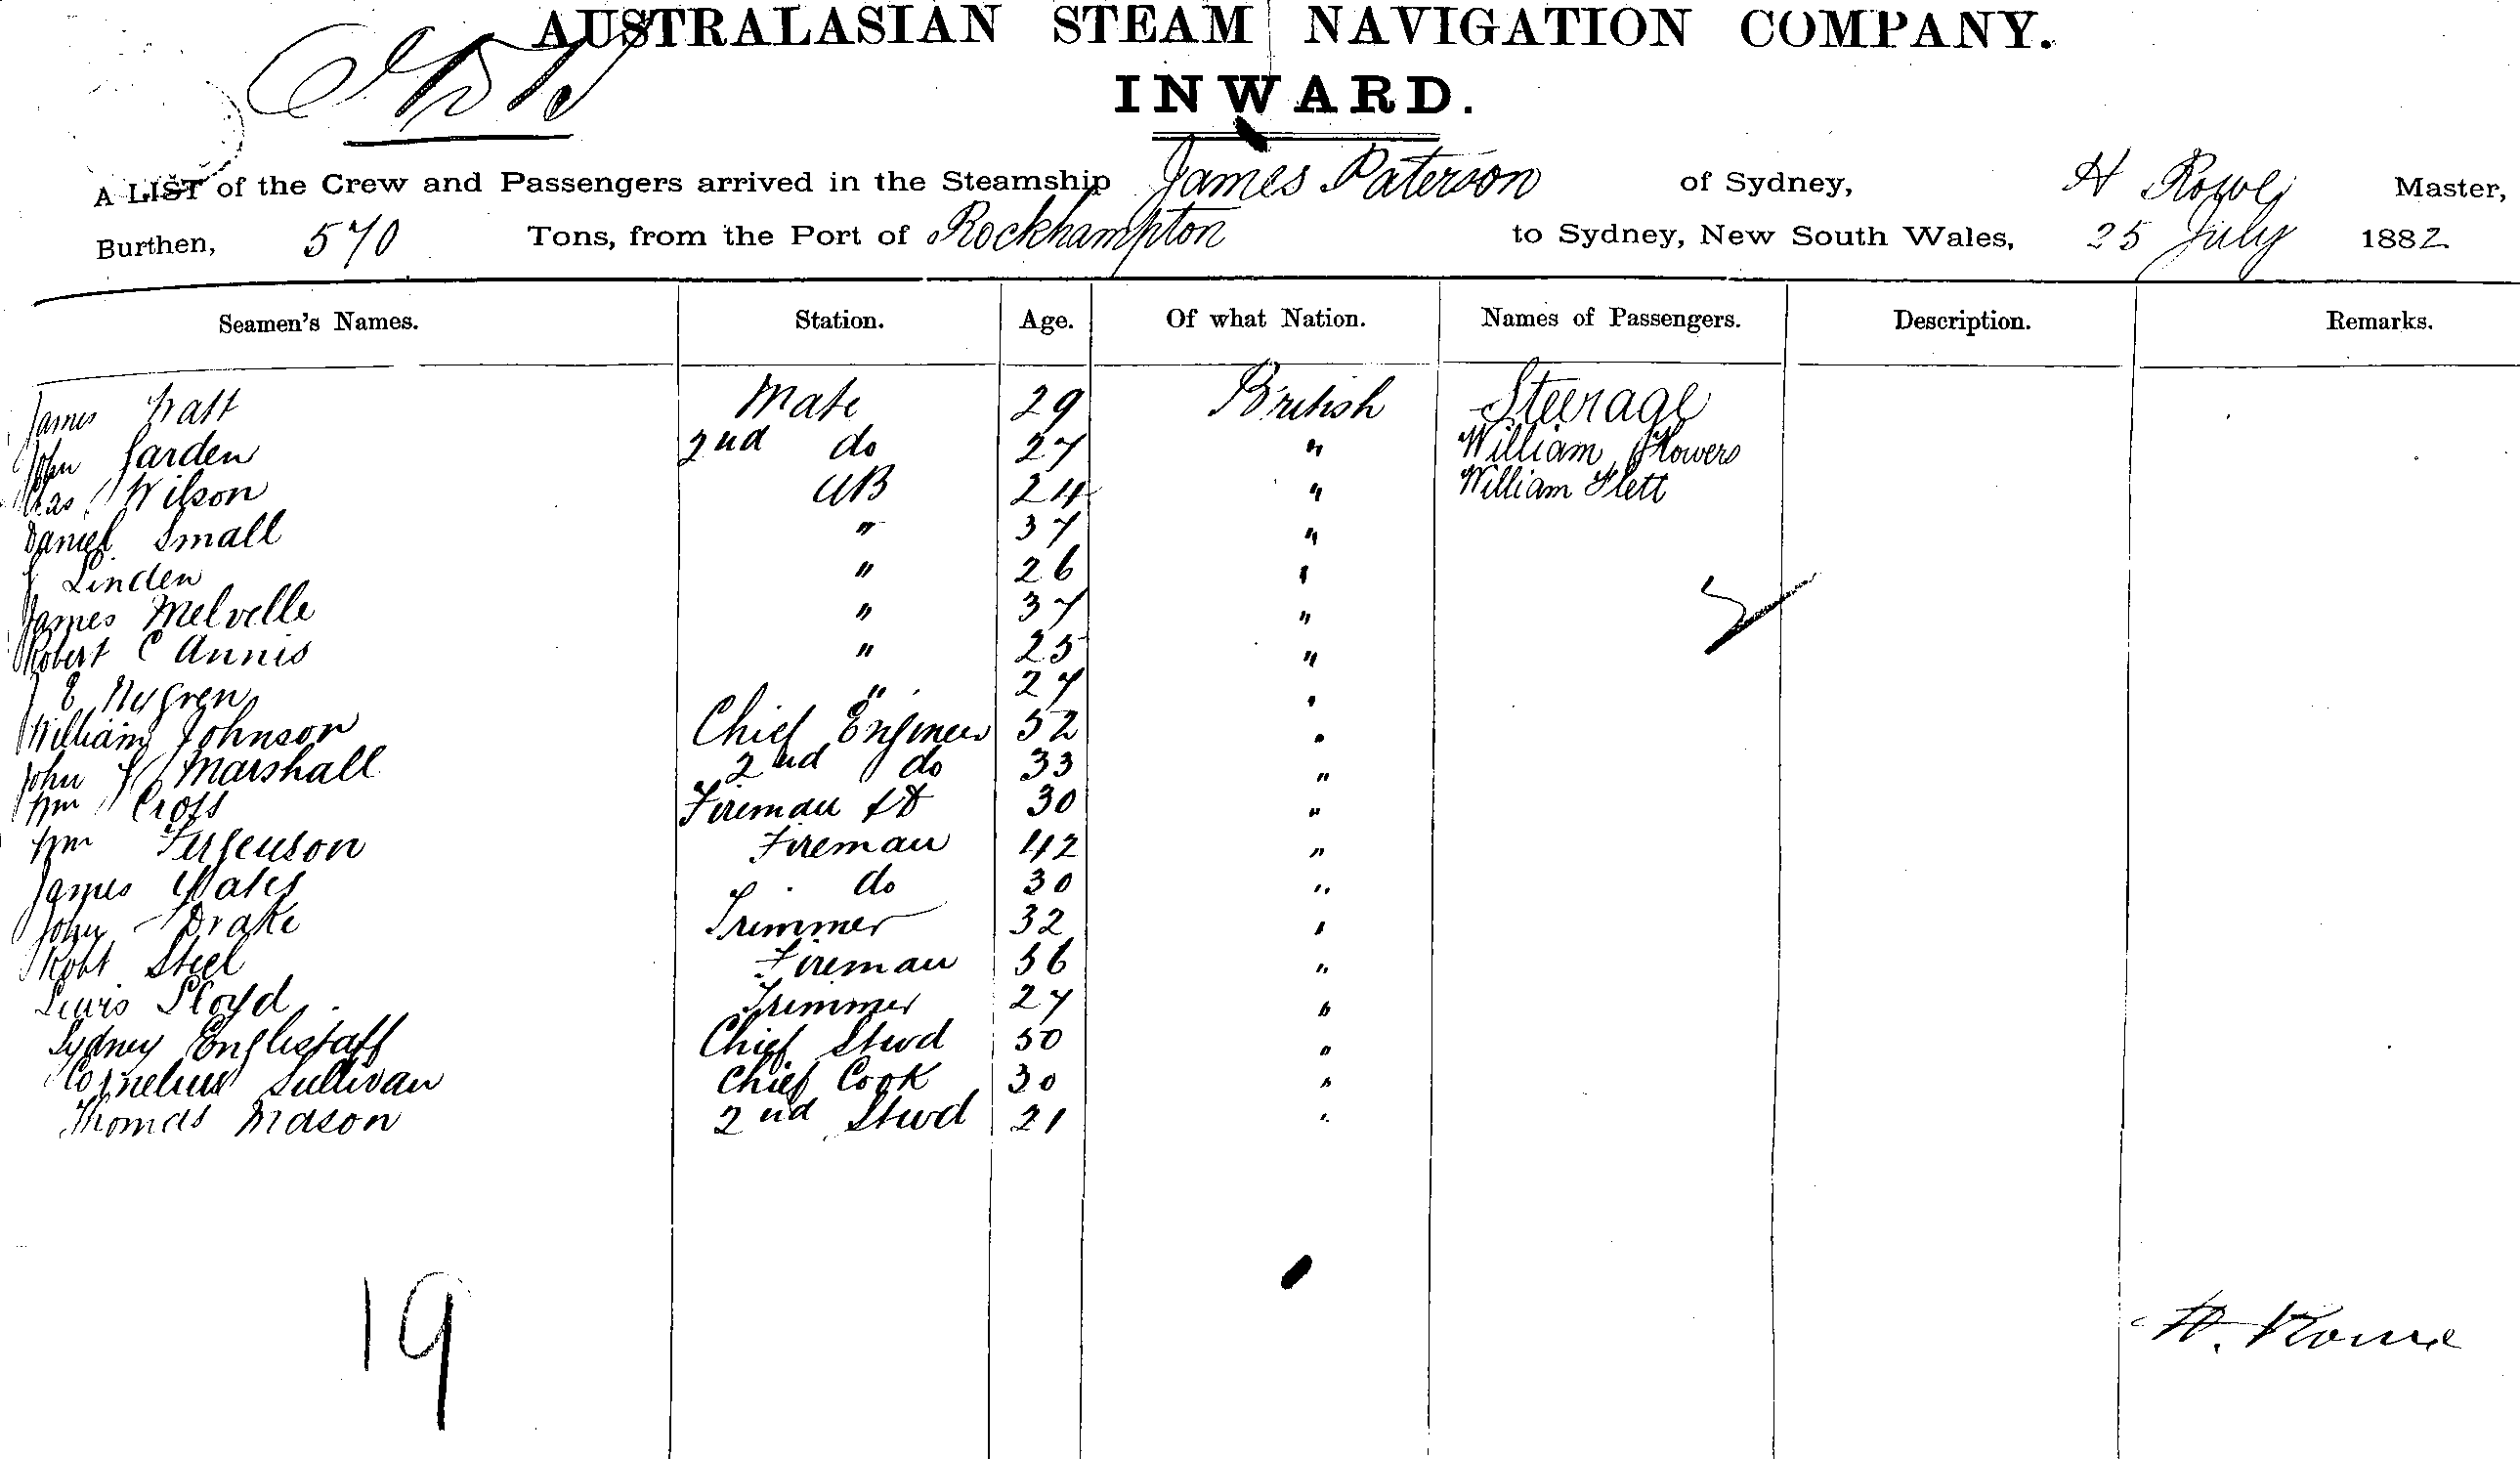 AUSTRALASIAN STEAM NAVIGATION COMPANY.
INWARD.
A LIST of the Crew and Passengers arrived in the Steamship James Paterson of Sydney, H Rowe Master,
Burthen, 570 Tons, from the Port of Rockhampton to Sydney, New South Wales, 25 July 1882
Seamen's Names. Station. Age. Of what Nation. Names of Passengers. Description. Remarks.
James Watt Mate 29 British Steerage
John Jarden 2nd do 27 " William Flowers
Chas Wilson AB 24 " William Flett
Daniel Small " 37 "
J Linden " 26 "
James Melvelle " 37 "
Robert C Annis " 25 "
J E Nygren " 27 "
William Johnson Chief Engineer 52 "
John Marshall 2nd do 33 "
Wm Cross Fireman 30 "
Wm Ferguson Fireman 42 "
James do 30 "
John Drake Trimmer 32 "
Robt Steel Fireman 36 "
Lewis Lloyd Trimmer 27 "
Sydney Englistaff Chief Stwd 50 "
Cornelius Sullivan Chief Cook 30 "
Thomas Mason 2nd Stwd 21 "
19
H. Rowe